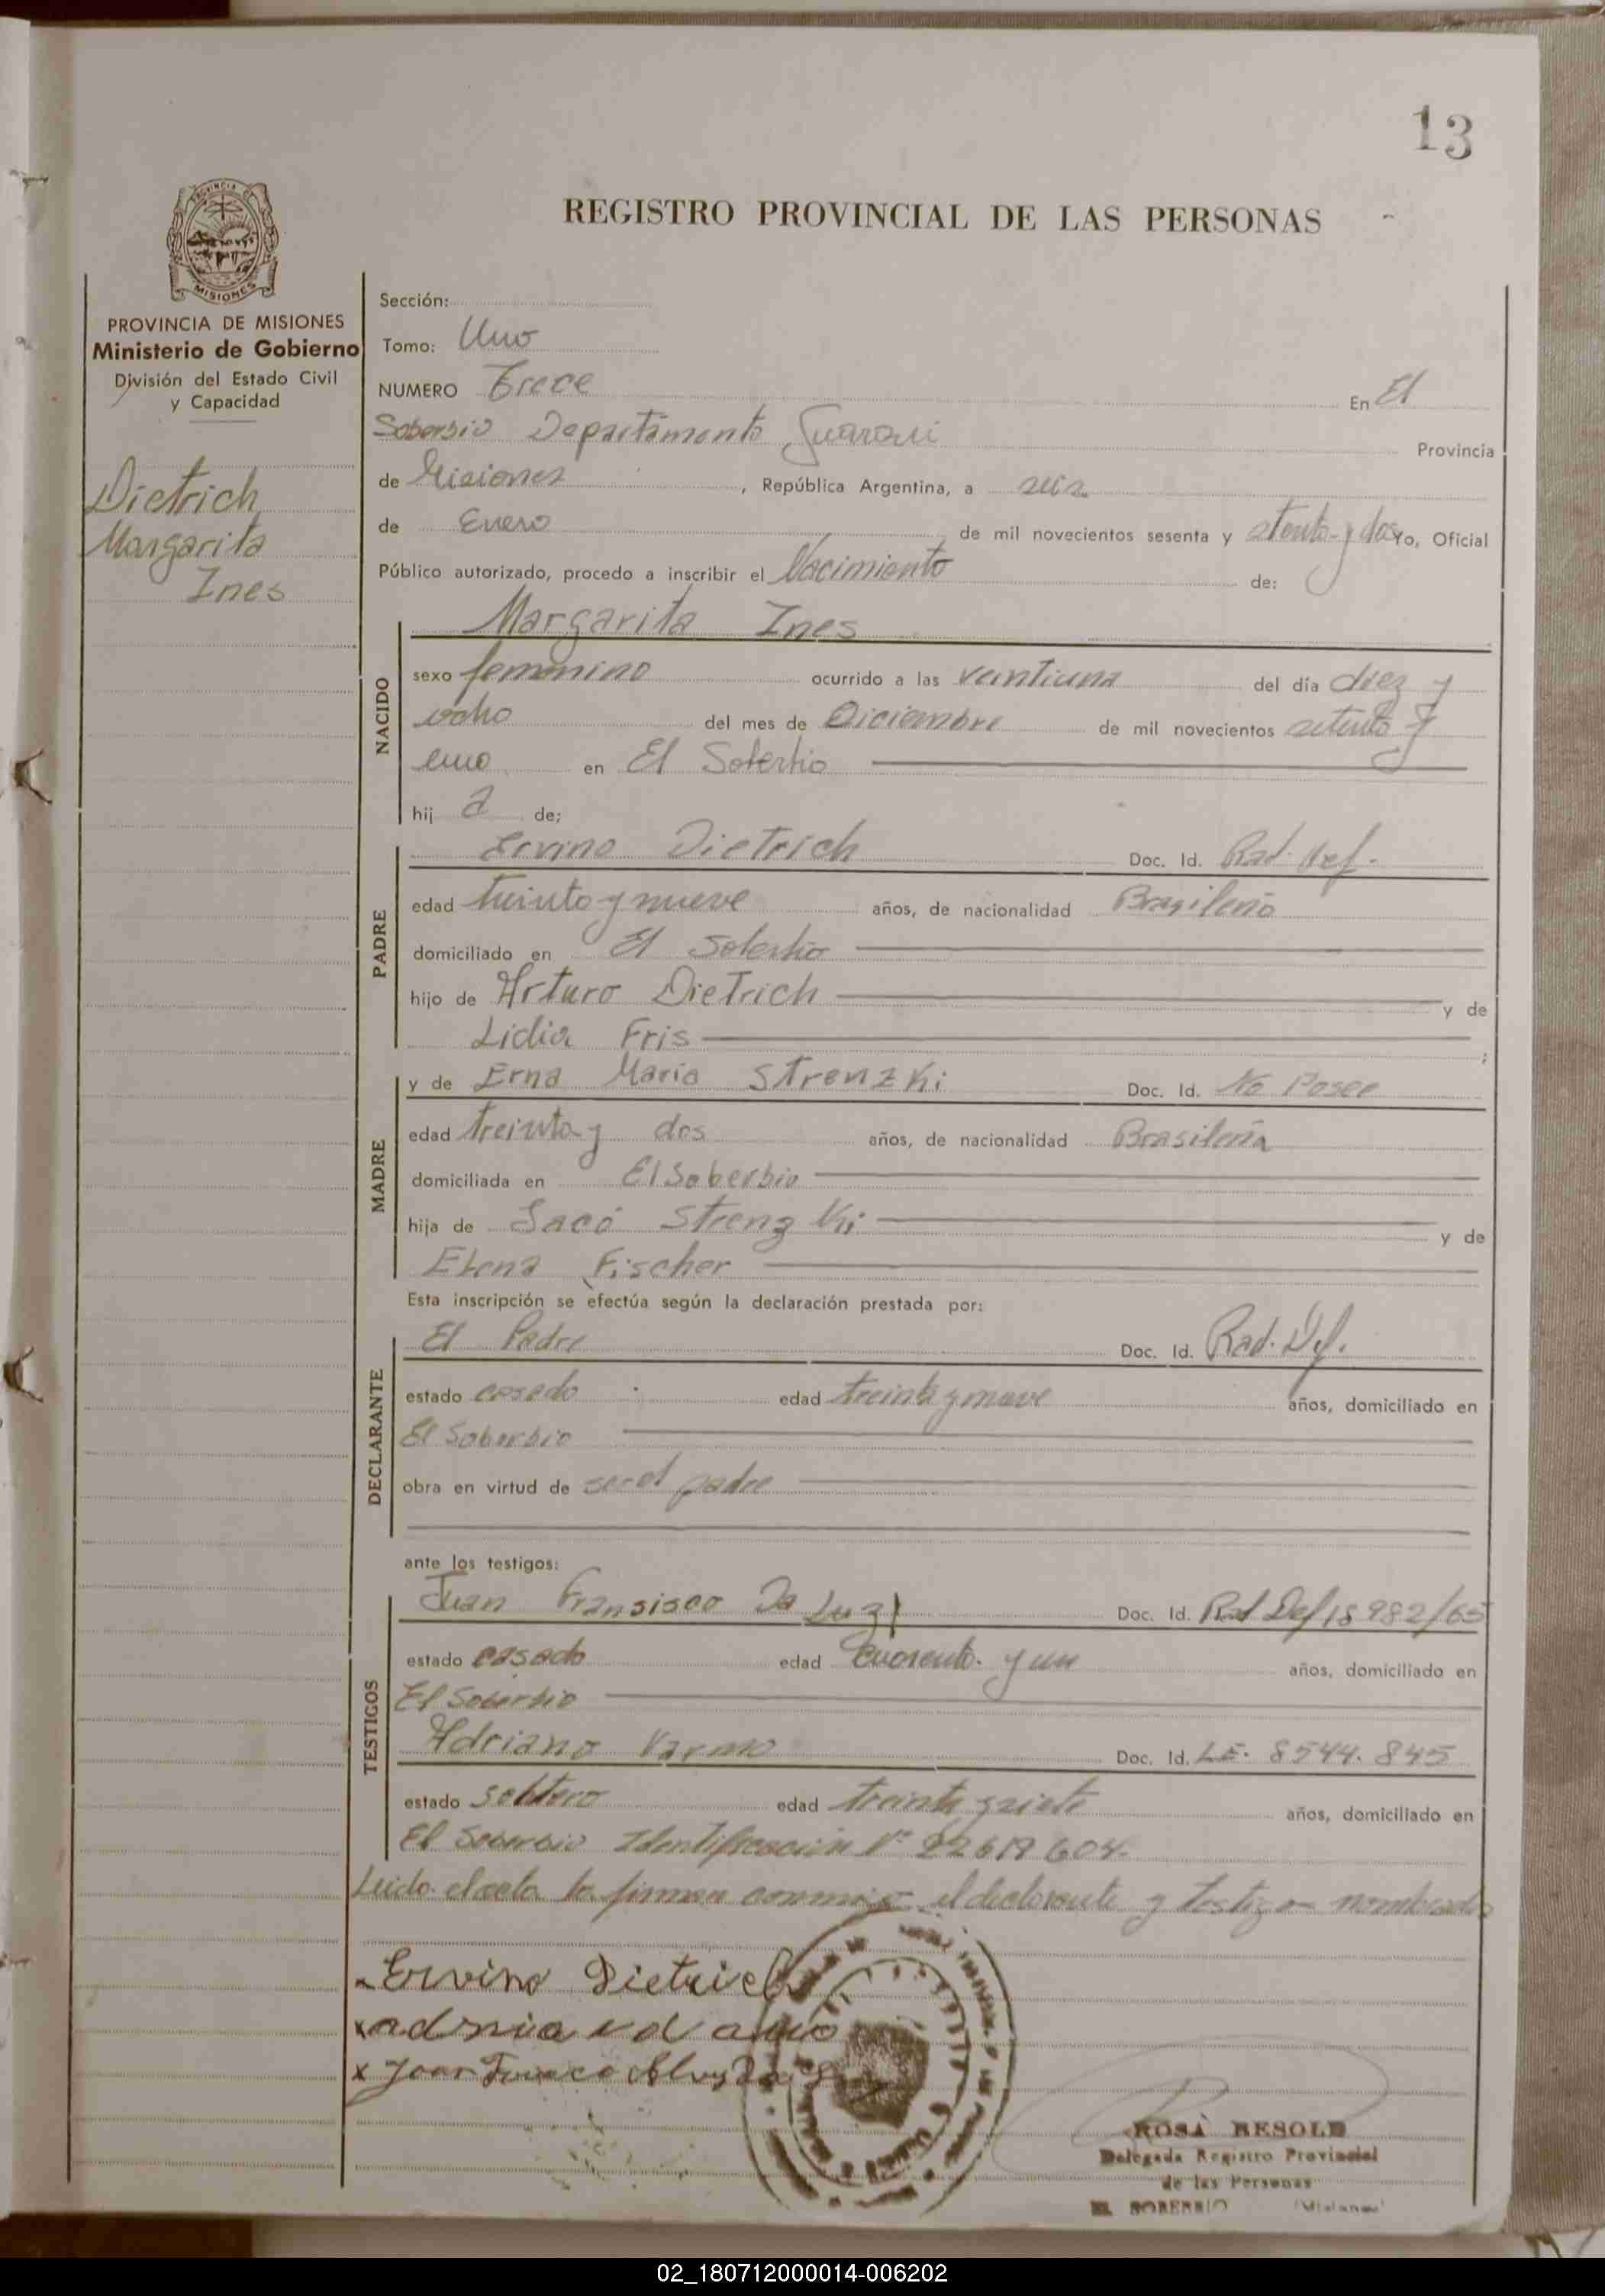 13
REGISTRO PROVINCIAL DE LAS PERSONAS
PROVINCIA DE MISIONES
Ministerio de Gobierno
División del Estado Civil
y Capacidad
Dietrich
Margarita
Ines
Sección:
Tomo: Uno
NUMERO Trece En El
Soberbio Departamento Guarani Provincia
de Misiones, República Argentina, a seis
de Enero de mil novecientos sesenta y setenta y dos Yo, Oficial
Público autorizado, procedo a inscribir el Nacimiento de:
NACIDO
Margarita Ines
sexo femenino ocurrido a las veintiuna del día diez y
ocho del mes de Diciembre de mil novecientos setenta y
uno en El Soberbio
hij a de;
PADRE
Ervino Dietrich Doc. Id. Rad. Def.
edad treinta y nueve años, de nacionalidad Brasileño
domiciliado en El Soberbio
hijo de Arturo Dietrich y de
Lidia Fris ;
MADRE
y de Erna Maria Strenzki Doc. Id. No Posee
edad treinta y dos años, de nacionalidad Brasileña
domiciliada en El Soberbio
hija de Jacó Strenzki y de
Elena Fischer
Esta inscripción se efectúa según la declaración prestada por:
DECLARANTE
El Padre Doc. Id. Rad. Def.
estado casado edad treinta y nueve años, domiciliado en
El Soberbio
obra en virtud de ser el padre
ante los testigos:
TESTIGOS
Juan Fransisco Da Luz Doc. Id. Rad Def 18982/65
estado casado edad cuarenta y un años, domiciliado en
El Soberbio
Adriano Doc. Id. L.E. 8544.845
estado soltero edad treinta y siete años, domiciliado en
El Soberbio Identificación Nº 22619604.
Leido el acta la firman conmigo el declarante y testigos nombrados
Ervino Dietrich
x
x
ROSA BESOLD
Delegada Registro Provincial
de las Personas
EL SOBERBIO (Misiones)
02_180712000014-006202